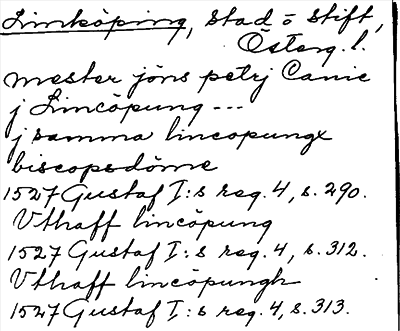 Linköping, stad o stift,
Österg. l.
mester jöns petrj Canic
j Lincöpung ---
j samma lincopungx
biscopsdöme
1527 Gustaf I:s reg. 4, s. 290.
Vthaff lincöpung
1527 Gustaf I:s reg. 4, s. 312.
Vthaff lincöpungh
1527 Gustaf I:s reg. 4, s. 313.